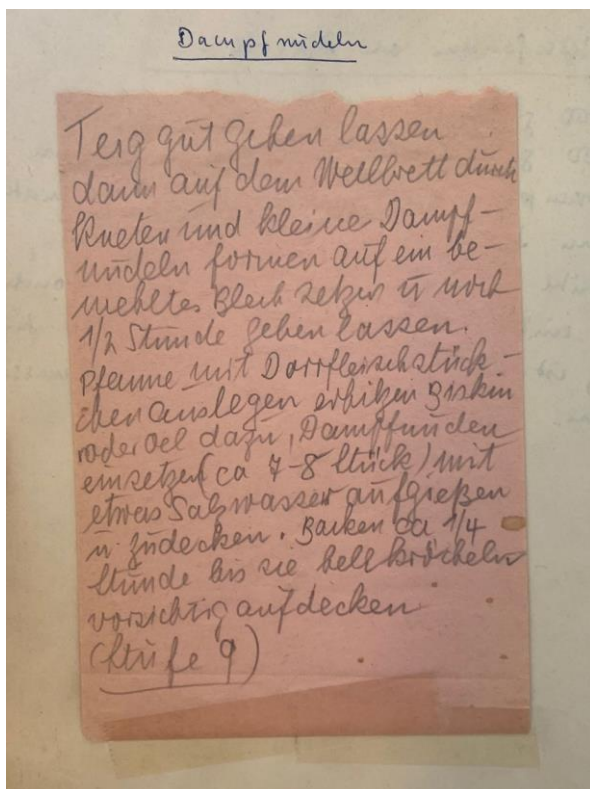 Dampfnudeln
Teig gut gehen lassen
dann auf dem Wellbrett durch
kneten und kleine Dampf-
nudeln formen auf ein be-
mehltes Blech setzen u noch
1/2 Stunde gehen lassen.
Pfanne mit Dörrfleischstück-
chen auslegen erhitzen Biskin
oder Oel dazu, Dampfnuden
einsetzen (ca 7-8 Stück) mit
etwas Salzwasser aufgießen
u. zudecken. Backen ca 1/4
Stunde bis sie hell kröcheln
vorsichtig aufdecken
(Stufe 9)